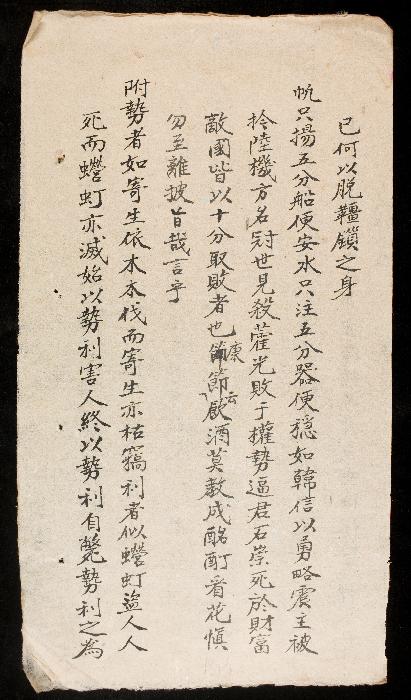 已何以脫韁鎖之身
帆只揚五分船便安水只注五分器便穩如韓信以勇略震主被
拎陸機方名冠世見殺藿光敗于權勢逼君石崇死於財富
敵國皆以十分取敗者也康節云飲酒莫教成酩酊看花慎
勿至離披旨哉言乎
附勢者如寄生依木木伐而寄生亦枯竊利者似蠳虰盜人人
死而蠳虰亦滅始以勢利害人終以勢利自斃勢利之為